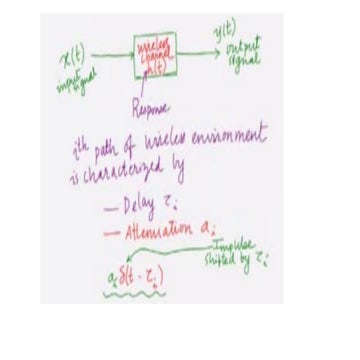 x(t)
input signal
wireless channel h(t)
y(t)
output signal
Response
ith path of wireless environment
is characterized by
— Delay τi
— Attenuation ai
Impulse
shifted by τi
aiδ(t - τi)